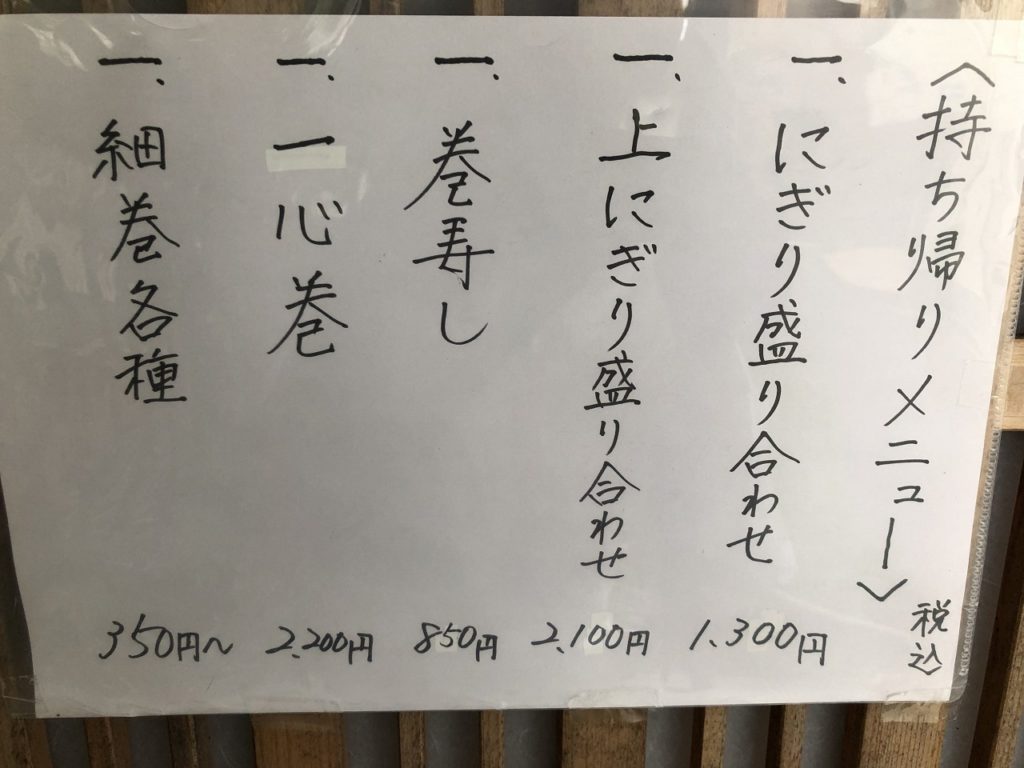 〈持ち帰りメニュー〉税込
一、にぎり盛り合わせ 1.300円
一、上にぎり盛り合わせ 2.100円
一、巻寿し 850円
一、一心巻 2.200円
一、細巻各種 350円〜